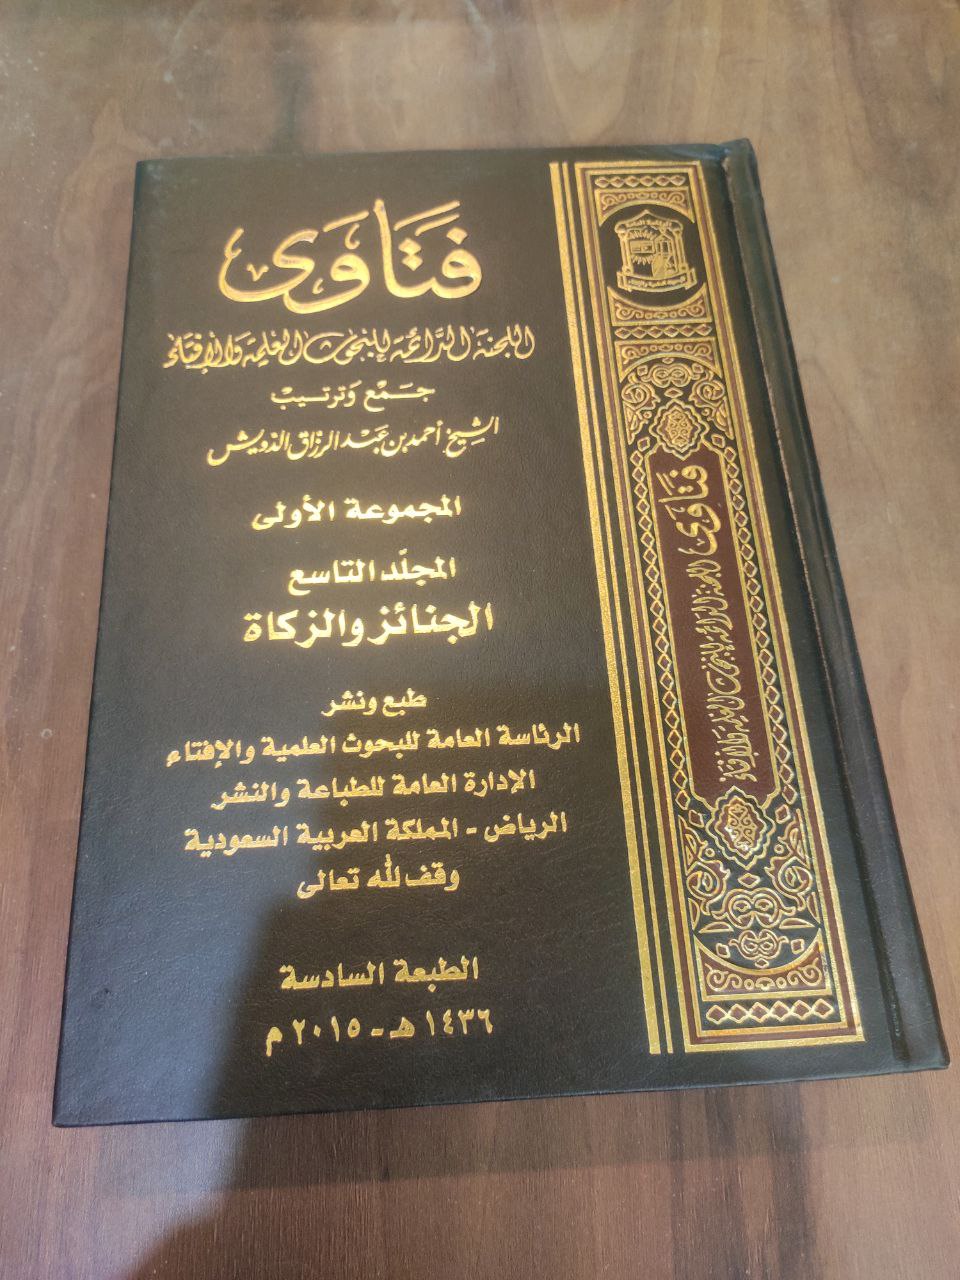 فتاوى
اللجنة الدائمة للبحوث العلمية والإفتاء
جمع وترتيب
الشيخ أحمد بن عبد الرزاق الدويش
المجموعة الأولى
المجلّد التاسع
الجنائز والزكاة
طبع ونشر
الرئاسة العامة للبحوث العلمية والإفتاء
الإدارة العامة للطباعة والنشر
الرياض - المملكة العربية السعودية
وقف لله تعالى
الطبعة السادسة
١٤٣٦ هـ - ٢٠١٥ م
فتاوى اللجنة الدائمة للبحوث العلمية والإفتاء